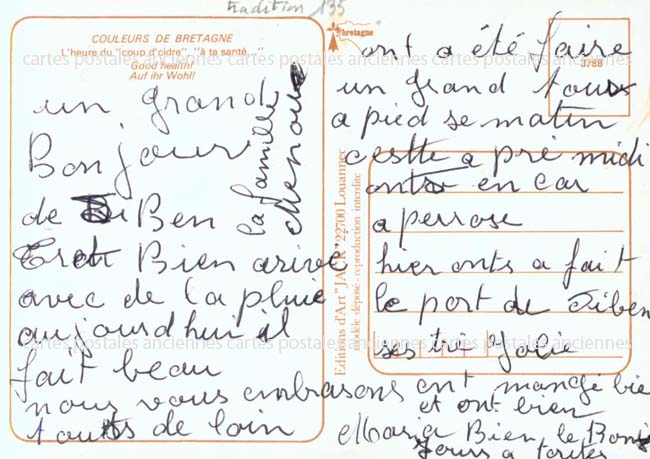 tradition 135
COULEURS DE BRETAGNE
L'heure du "coup d'cidre", "à ta santé..."
Good health!
Auf ihr Wohl!
un grand
Bonjour
de Ben
Bien arive
avec de la pluie
aujourdhui il
fait beau
nous vous embrasons
touts de loin
la famille
Editions d'Art "JACK" 22700 Louannec
modèle déposé - reproduction interdite
bretagne
3788
ont a été faire
un grand tour
a pied se matin
cestte a pré midi
ont en car
a perrose
hier onts a fait
le port de
ses tré Jolie
ont mangé bie
et ont bien
Maria Bien le Bon
Jours a toutes
cartes postales anciennes cartes postales anciennes cartes postales anciennes
cartes postales anciennes cartes postales anciennes cartes postales anciennes